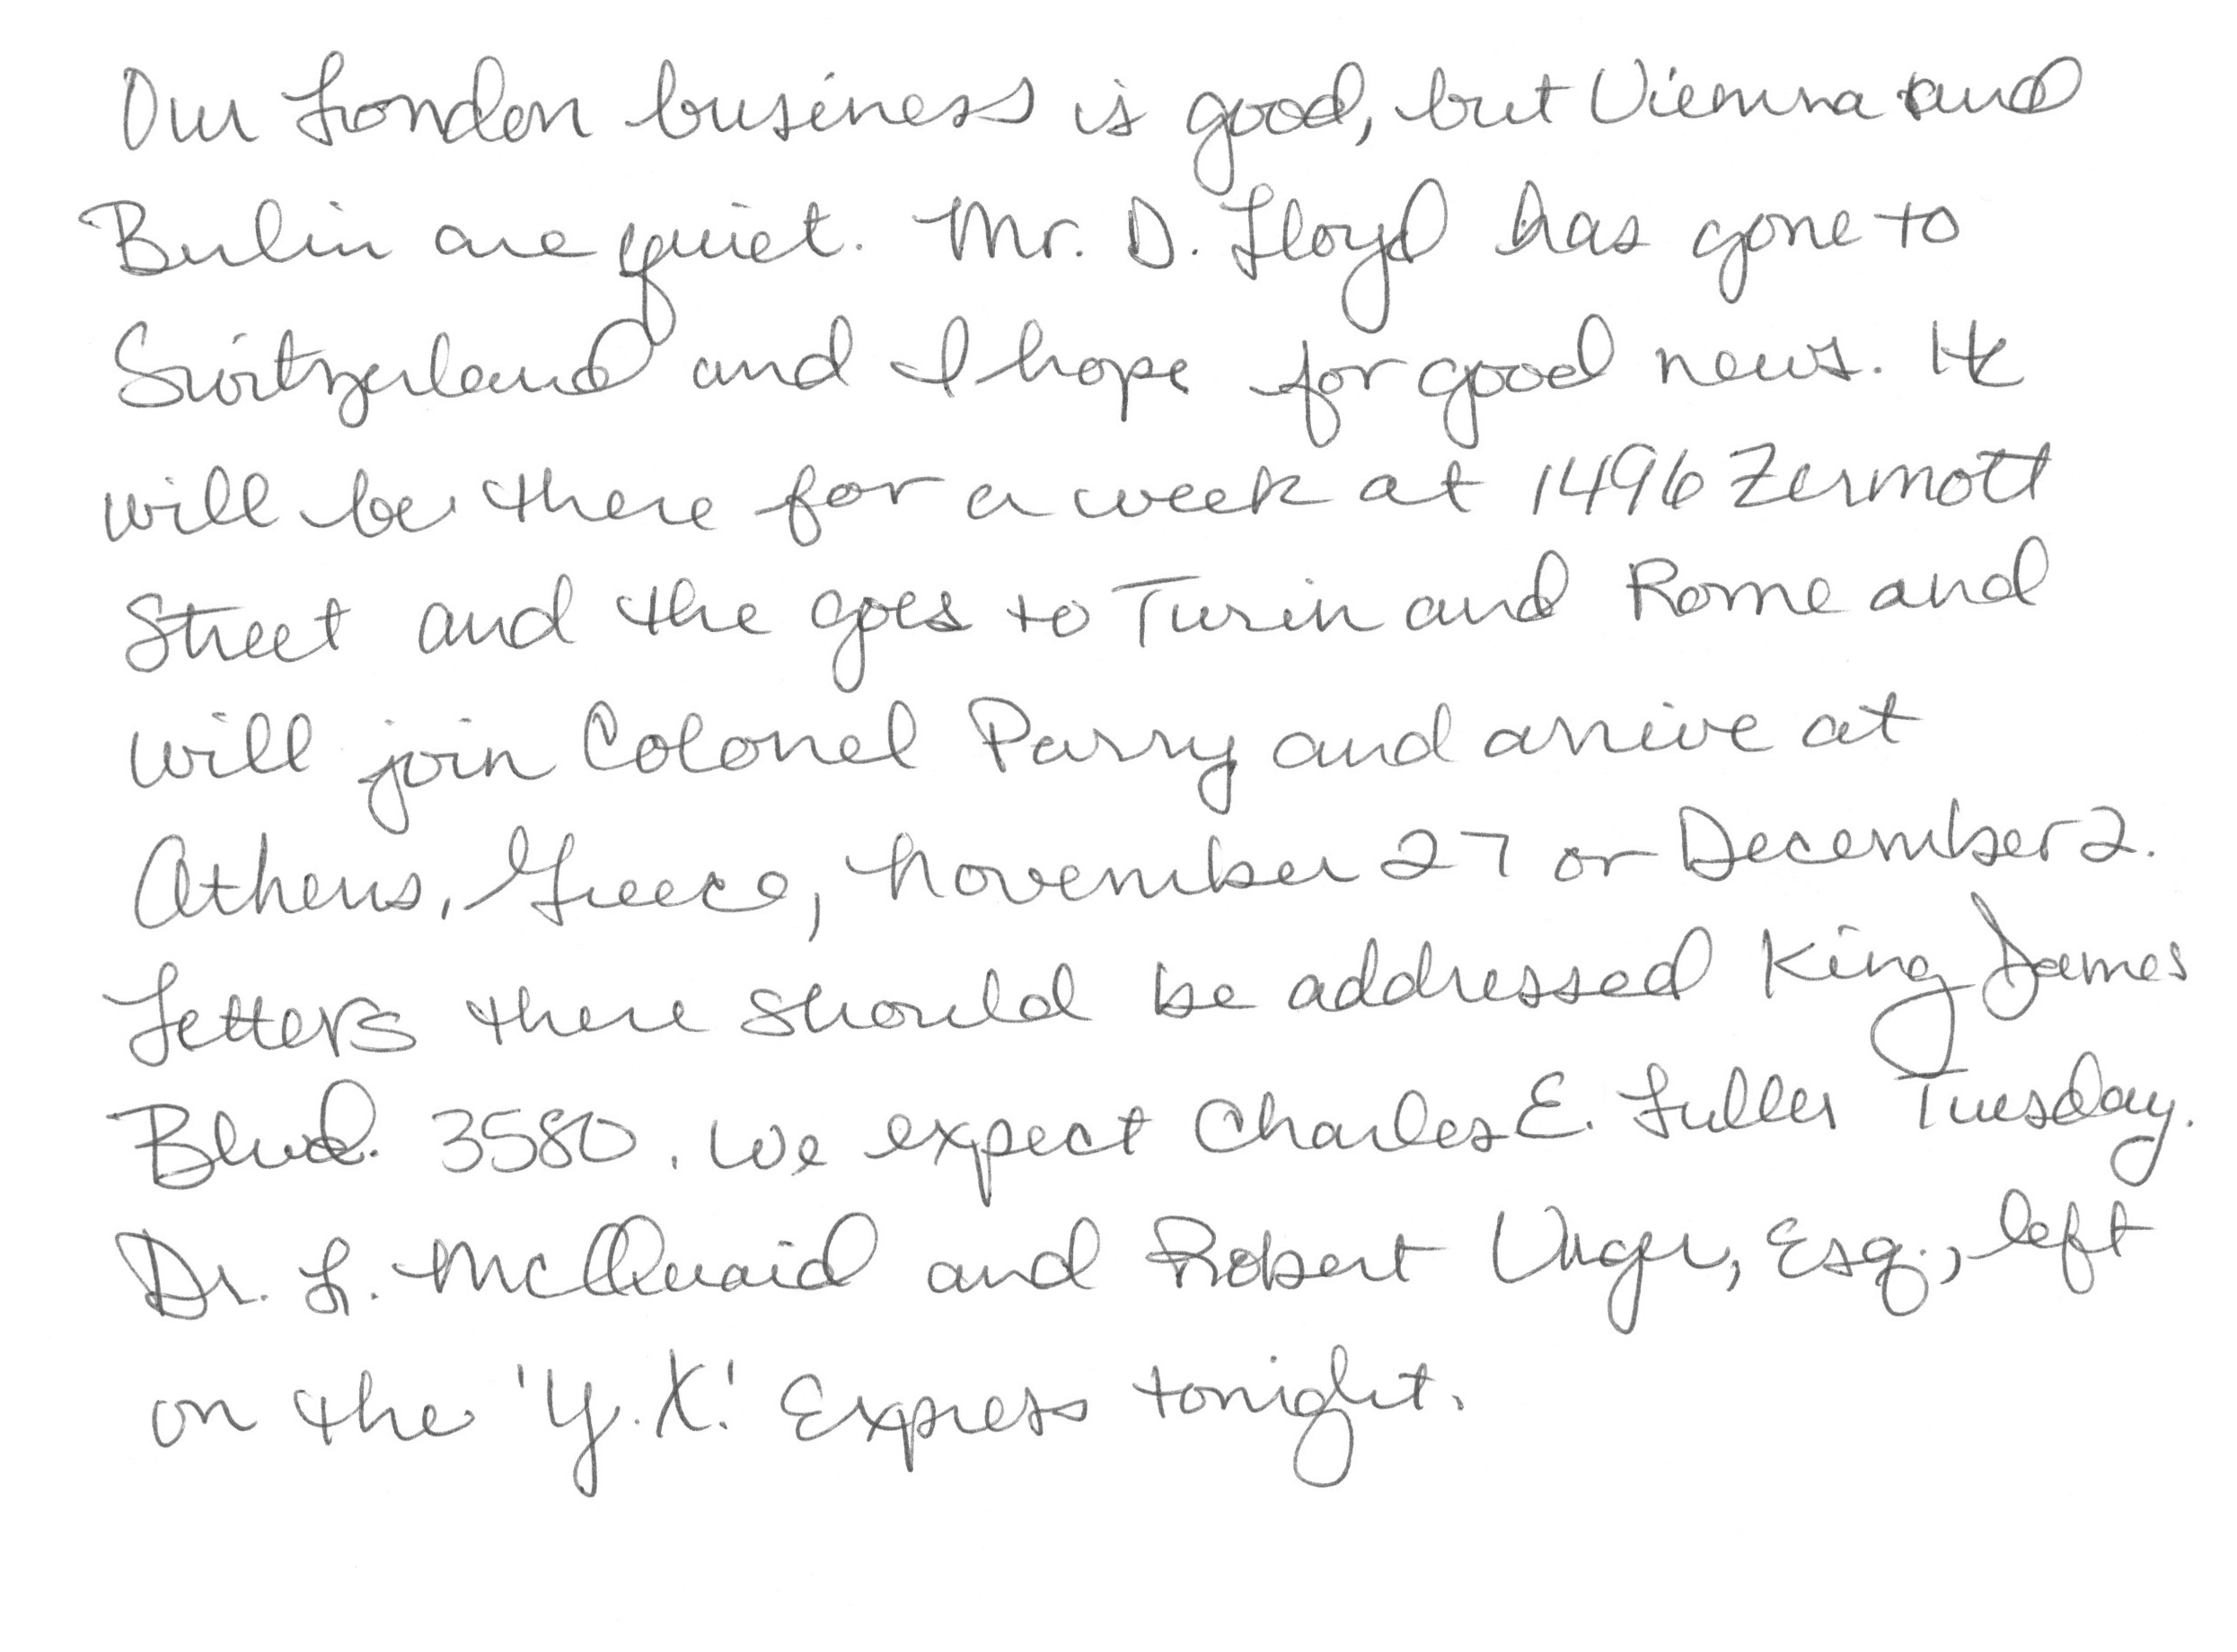 Our London business is good, but Vienna and
Berlin are quiet. Mr. D. Lloyd has gone to
Switzerland and I hope for good news. He
will be there for a week at 1496 Zermott
Street and the goes to Turin and Rome and
will join Colonel Parry and arrive at
Athens, Greece, November 27 or December 2.
Letters there should be addressed King James
Blvd. 3580. We expect Charles E. Fuller Tuesday.
Dr. L. McQuaid and Robert Unger, Esq., left
on the 'Y.X.' Express tonight.